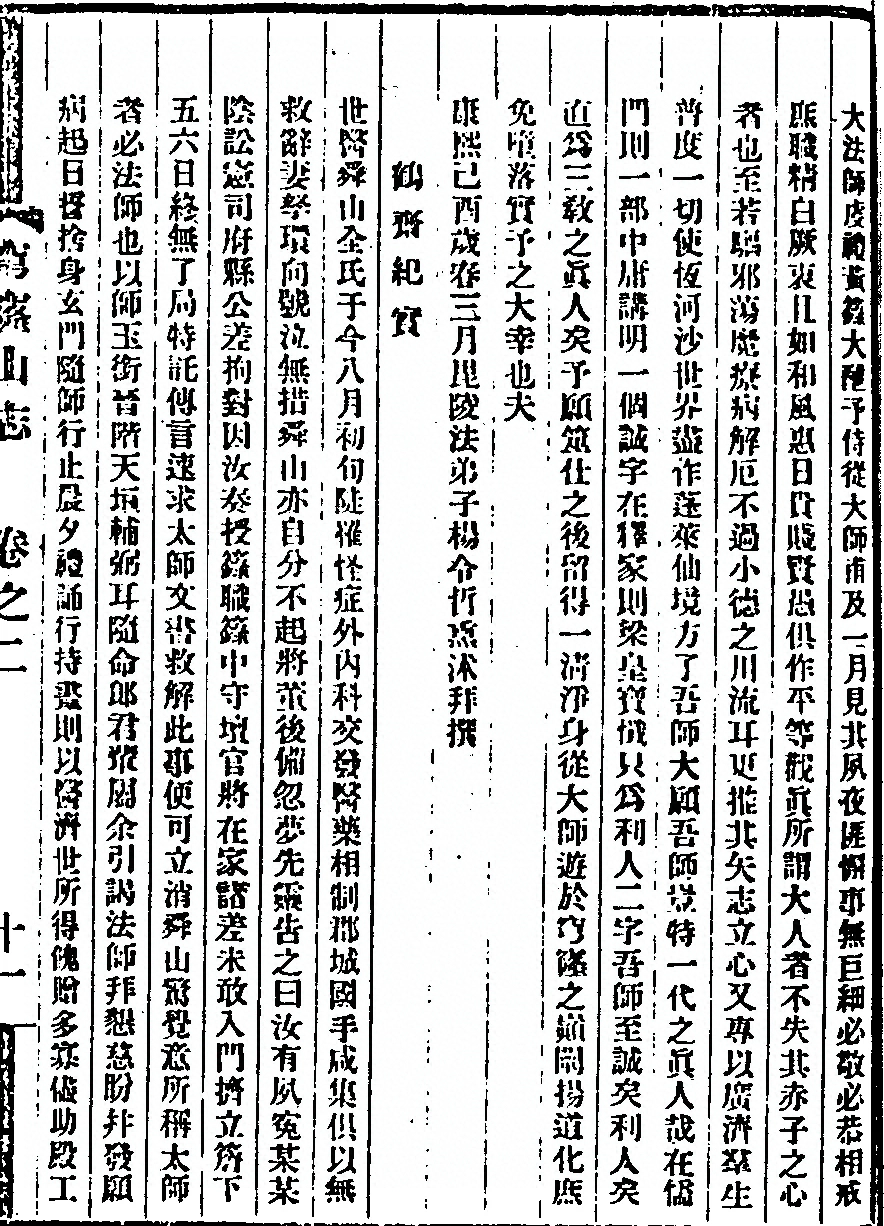 大法師虔禮黃籙大醮予侍從大師甫及一月見其夙夜匪懈事無巨細必敬必恭相戒
庶職精白厥衷且如和風惠日貴賤賢愚俱作平等觀眞所謂大人者不失其赤子之心
者也至若驅邪蕩魔療病解厄不過小德之川流耳更推其矢志立心又專以廣濟羣生
普度一切使恆河沙世界盡作蓬萊仙境方了吾師大願吾師豈特一代之眞人哉在儒
門則一部中庸講明一個誠字在釋家則梁皇寶懺只爲利人二字吾師至誠矣利人矣
直爲三敎之眞人矣予願筮仕之後留得一淸淨身從大師遊於穹窿之巔闡揚道化庶
免墮落實予之大幸也夫
康熙己酉歲春三月毘陵法弟子楊令哲熏沐拜撰
鶴齋紀實
世醫舜山全氏于今八月初旬陡罹怪症外內科交發醫藥相制郡城國手咸集俱以無
救辭妻孥環向號泣無措舜山亦自分不起將革後備忽夢先靈告之曰汝有夙冤某某
陰訟憲司府縣公差拘對因汝奏授籙職籙中守壇官將在家諸差未敢入門擠立簷下
五六日終無了局特託傳言速求太師文書救解此事便可立消舜山驚覺意所稱太師
者必法師也以師玉銜晉階天垣輔弼耳隨命郎君眾屬余引謁法師拜懇慈盼幷發願
病起日誓捨身玄門隨師行止晨夕禮誦行持晝則以醫濟世所得餽贈多寡備助殿工
穹窿山志 卷之二 十一